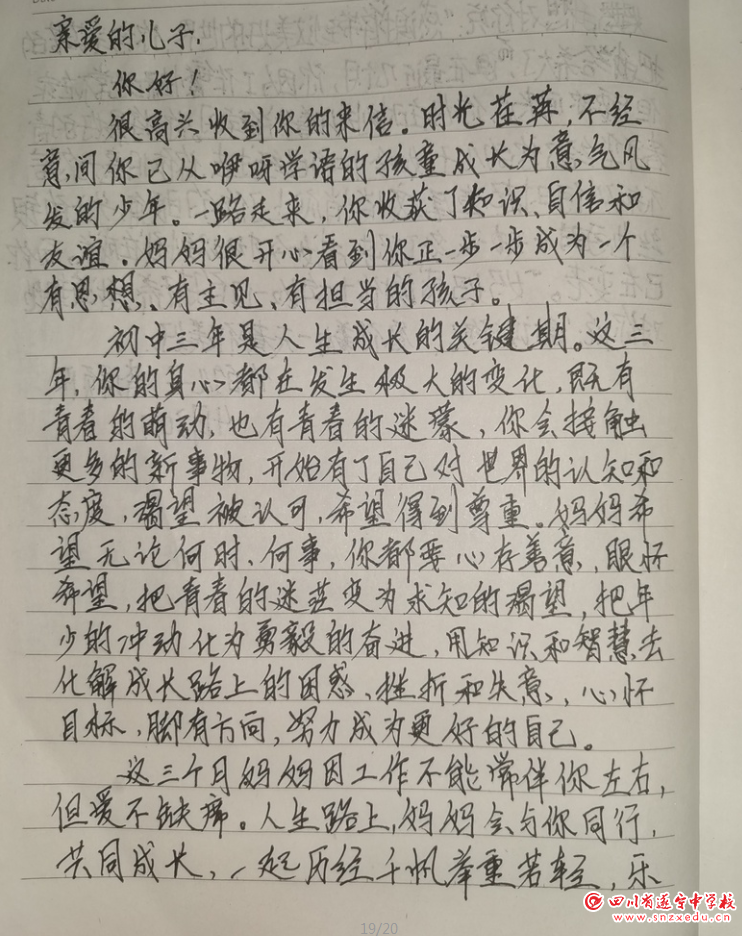 亲爱的儿子,
你好!
很高兴收到你的来信。时光荏苒,不经
意间你已从咿呀学语的孩童成长为意气风
发的少年。一路走来,你收获了知识、自信和
友谊。妈妈很开心看到你正一步一步成为一个
有思想、有主见、有担当的孩子。
初中三年是人生成长的关键期。这三
年,你的身心都在发生极大的变化,既有
青春的萌动,也有青春的迷蒙,你会接触
更多的新事物,开始有了自己对世界的认知和
态度,渴望被认可,希望得到尊重。妈妈希
望无论何时、何事,你都要心存善意,眼怀
希望,把青春的迷茫变为求知的渴望,把年
少的冲动化为勇毅的奋进,用知识和智慧去
化解成长路上的困惑、挫折和失意,心怀
目标,脚有方向,努力成为更好的自己。
这三个月妈妈因工作不能常伴你左右,
但爱不缺席。人生路上,妈妈会与你同行,
共同成长,一起历经千帆举重若轻,乐
19/20
四川省遂宁中学校
www.snzxedu.cn